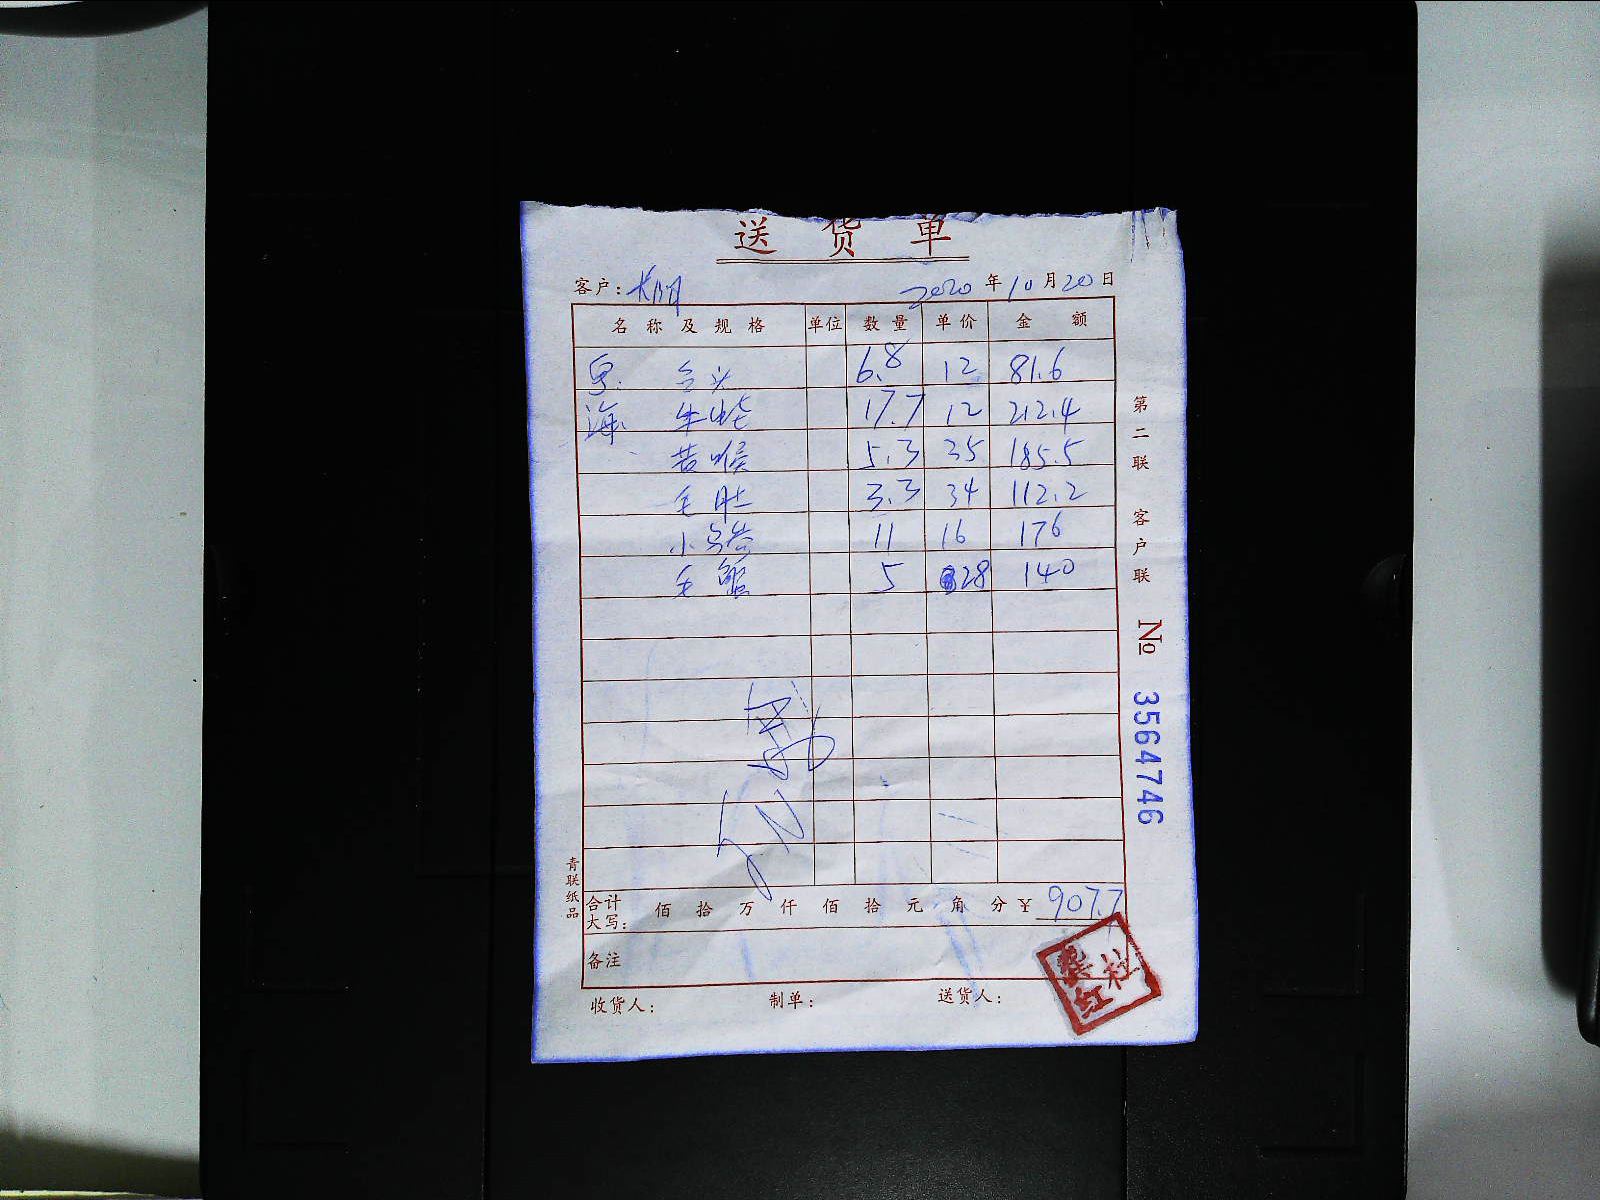 送 货 单
客户: 长阴 2020年10月20日
名称及规格 单位 数量 单价 金额
6.8 12 81.6
海 牛蛇 17.7 12 212.4
苦喉 5.3 35 185.5
毛肚 3.3 34 112.2
小 11 16 176
毛蟹 5 28 140
合计大写: 佰 拾 万 仟 佰 拾 元 角 分 ¥ 907.7
备注
收货人: 制单: 送货人:
第二联 客户联 № 3564746
青联纸品
龚 红